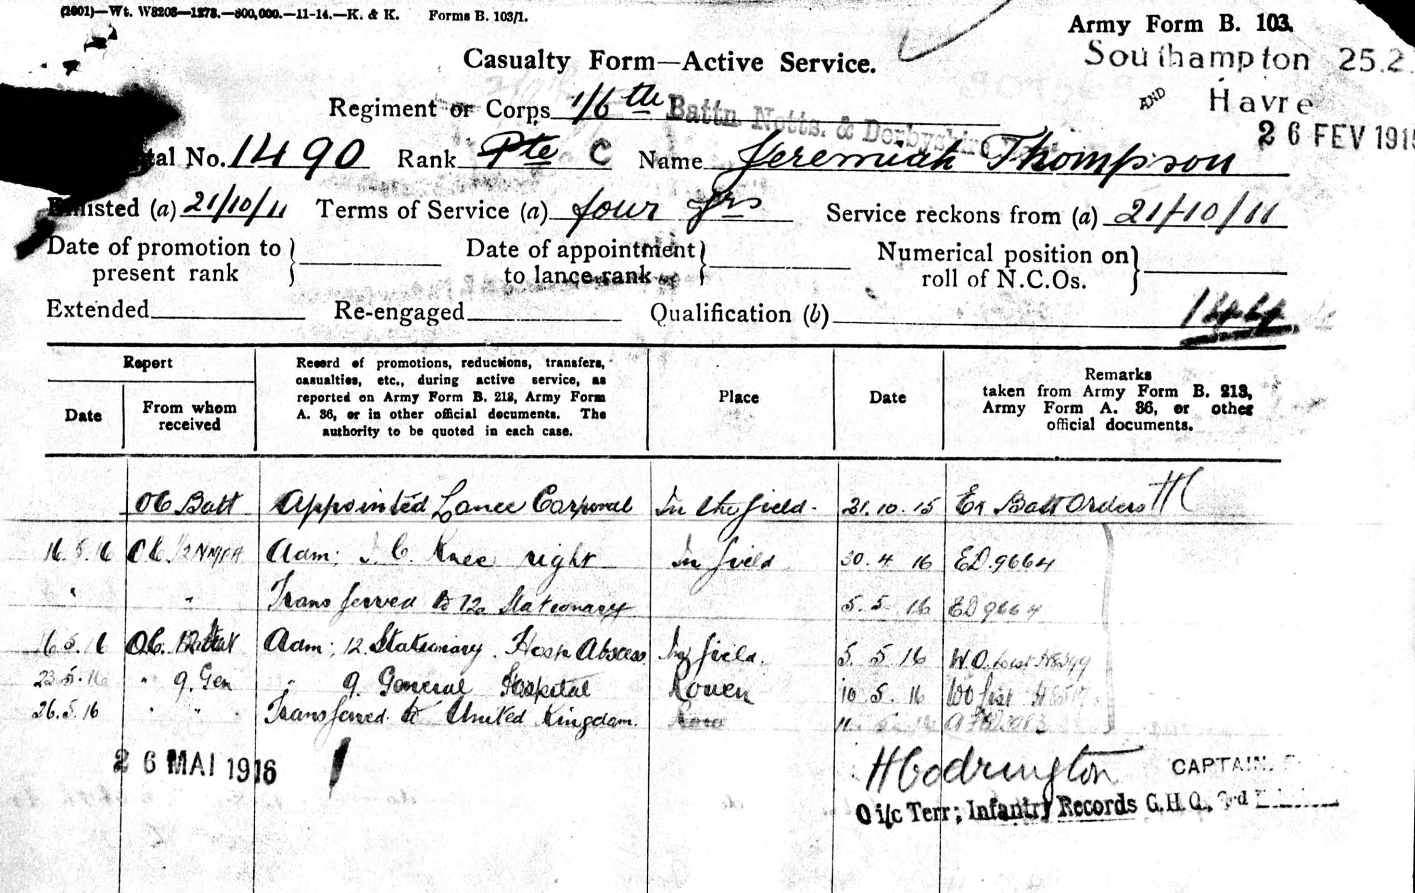 (2601)—Wt. W8208—1273.—800,000.—11-14.—K. & K. Forms B. 103/1.
Army Form B. 103.
Southampton 25.2
Casualty Form—Active Service.
AND Havre
Regiment or Corps 1/6th Battn Notts. & Derbyshire
26 FEV 1915
No. 1490 Rank Pte C Name Jeremiah Thompson
Enlisted (a) 21/10/11 Terms of Service (a) four yrs Service reckons from (a) 21/10/11
Date of promotion to present rank Date of appointment to lance rank Numerical position on roll of N.C.Os.
Extended Re-engaged Qualification (b)
144
Report
Date
From whom received
Record of promotions, reductions, transfers, casualties, etc., during active service, as reported on Army Form B. 213, Army Form A. 36, or in other official documents. The authority to be quoted in each case.
Place
Date
Remarks taken from Army Form B. 213, Army Form A. 36, or other official documents.
OC Batt Appointed Lance Corporal In the field. 21.10.15 Ex Batt Orders
16.5.16 Adm; Knee right In field 30.4.16 ED.9664
" " Transferred to 12 Stationary 5.5.16 ED9664
16.5.16 OC. 12 Stat Adm; 12 Stationary Hosp Abscess field. 5.5.16 W.O. List
23.5.16 " 9. Gen " 9. General Hospital Rouen 10.5.16 WO list
26.5.16 " " Transferred to United Kingdom. 11
26 MAI 1916
H Codrington CAPTAIN.
O i/c Terr; Infantry Records G.H.Q., 3rd